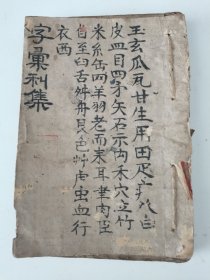 玉玄瓜瓦甘生用田疋疒癶白
皮皿目矛矢石示禸禾穴立竹
米糸缶网羊羽老而耒耳聿肉臣
自至臼舌舛舟艮色艸虍虫血行
衣西
字彙利集